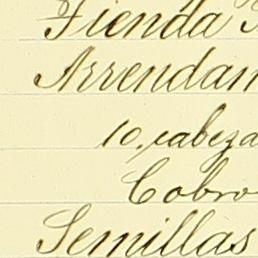 Tienda
Arrendam
10, cabeza
Cobro
Semillas